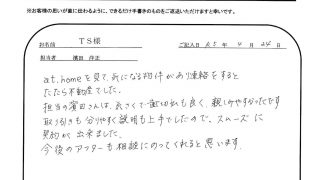 ※お客様の思いが直に伝わるように、できるだけ手書きのものをご返送いただけますと幸いです。
お名前 TS様 ご記入日 R5年 4月 24日
担当者 濱田 洋正
at homeを見て、気になる物件があり連絡をすると
たたら不動産でした。
担当の濱田さんは、気さくで歯切れも良く、親しみやすかったです
取り引きも分りやすく説明も上手でしたので、スムーズに
契約が出来ました。
今後のアフターも相談にのってくれると思います。